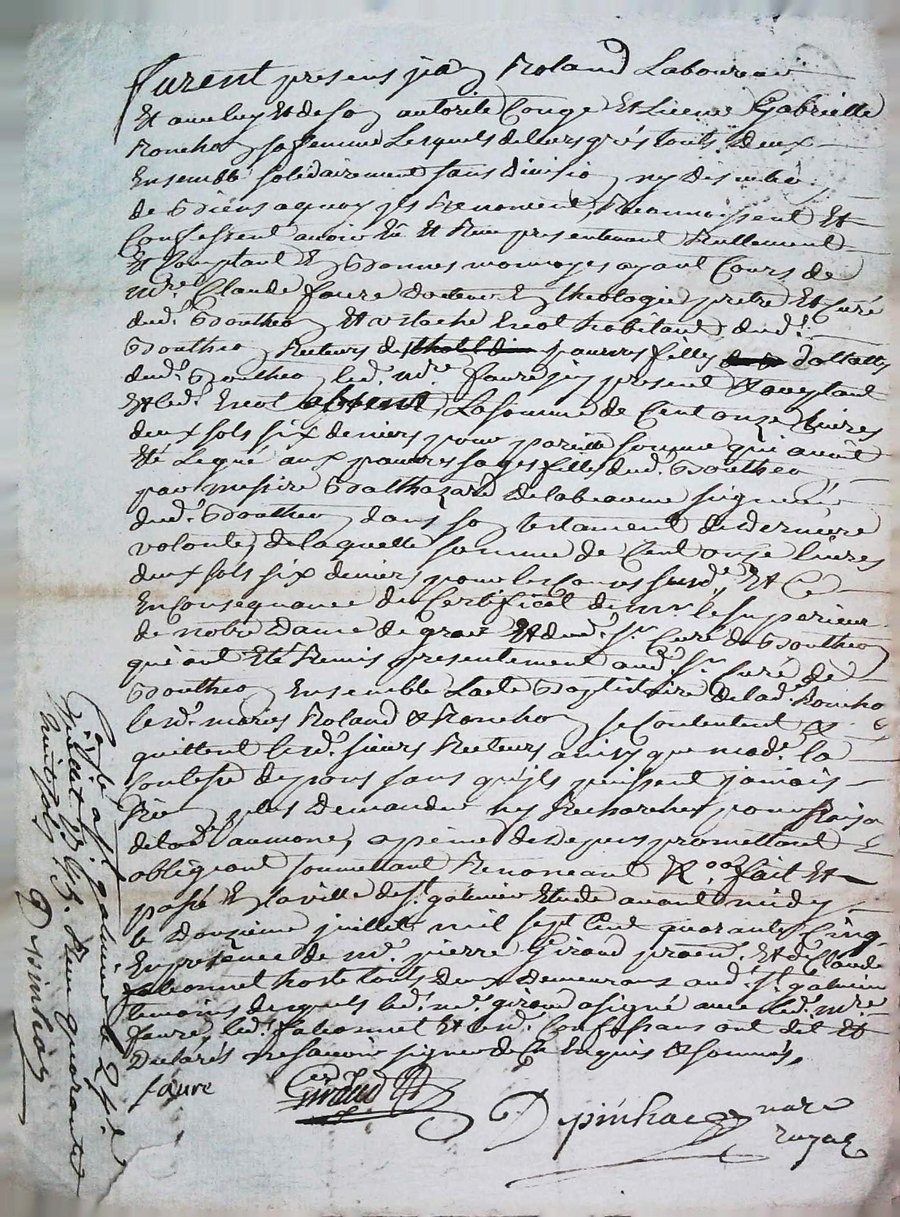 furent presens jean Roland Laboureur
Et avec luy Et de son autorité Congé Et Licence Gabrielle
Ronchon sa femme Lesquels de leurs grés touts deux
Ensemble solidairement sans division ny
de Biens a quoy jls Renoncent, Reconnoissent Et
Confessent avoir Eû Et Receu presentement Reellement
Et Comptant En Bonnes monnoyes ayant Cours de
mre. Claude faure docteur En theologie pretre Et Curé
dud. Boutheon Et habitant dud.
Boutheon Recteurs de pauvres filles
dud. Boutheon led. mre. faure jcy present Et
Et led. absent, La somme de Cent onze Livres
deux sols six deniers pour pareille somme qui avoit
Eté Legué aux pauvres sages filles dud. Boutheon
par messire Balthazard de la beaume seigneur
dud. Boutheon dans son testament de derniere
volonté, de laquelle somme de Cent onze Livres
deux sols six deniers pour les Causes susd. Et Ce
En Consequance du Certificat de mr. le superieur
de notre Dame de grace Et dud. Sr. Curé de Boutheon
qui ont Eté Remis presentement aud. Sr. Curé de
Boutheon Ensemble L'acte Baptistaire de lad. Ronchon
lesd. mariés Roland & Ronchon se Contentent &
quittent lesd. sieurs Recteurs ainsy que made. la
sans qu'jls puissent jamais
Rien plus demander ny Rechercher pour Raison
de lad. aumone, a peine de Depens promettant
obligeant soumettant Renonceant &c. fait Et
passé En la ville de st. galmier Etude avant midy
le Douzieme juillet mil sept Cent quarante Cinq
En presence de mr. pierre Giraud Et de Claude
hoste touts deux demeurans aud. st. galmier
temoins desquels led. mr. giraud a signé avec led. mre.
faure, led. Et lesd. Confessans ont dit Et
Declarés ne savoir signer de Ce Enquis & sommés,
faure Giraud
Depinhac nore
royal
Controllé a st. galmier le
juillet 1745. Receu quarante
huit sols
Depinhac